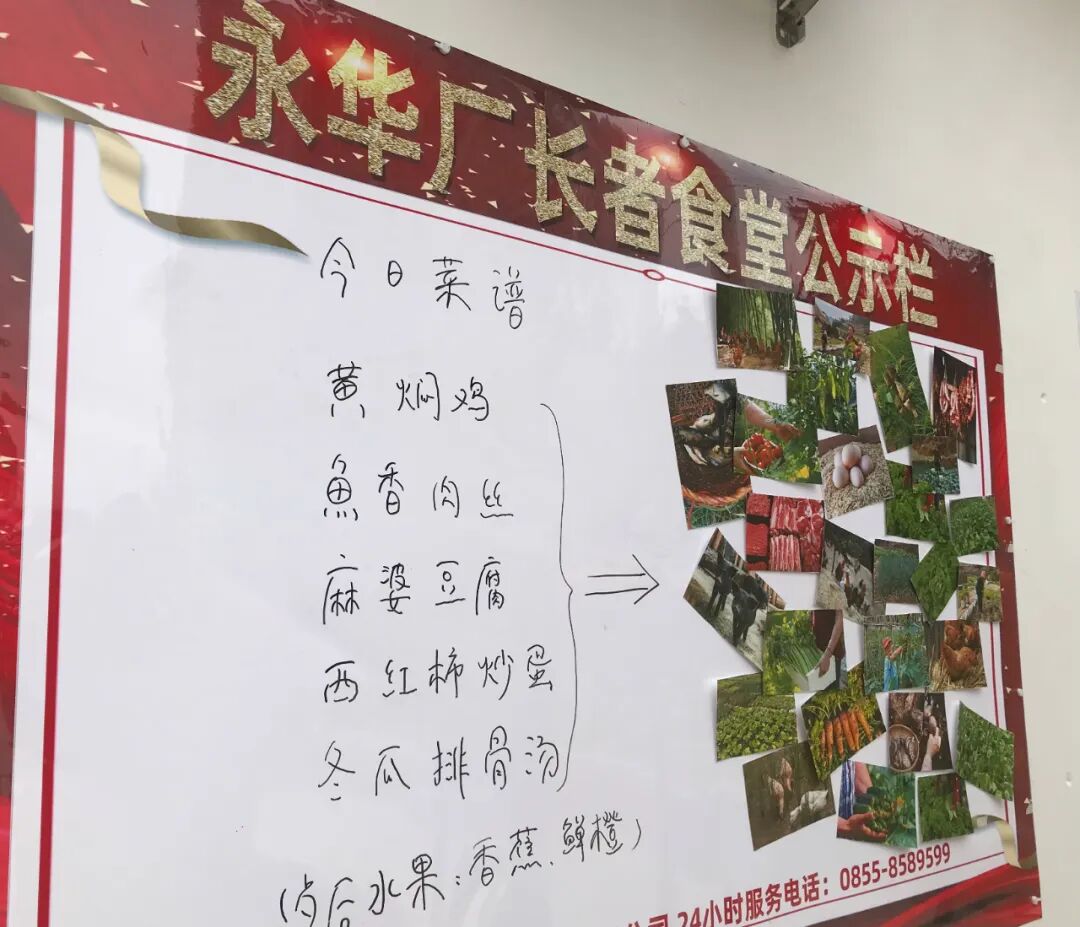 永华厂长者食堂公示栏
今日菜谱
黄焖鸡
魚香肉丝
麻婆豆腐
西红柿炒蛋
冬瓜排骨汤
后水果:香蕉、鲜橙)
公司 24小时服务电话：0855-8589599